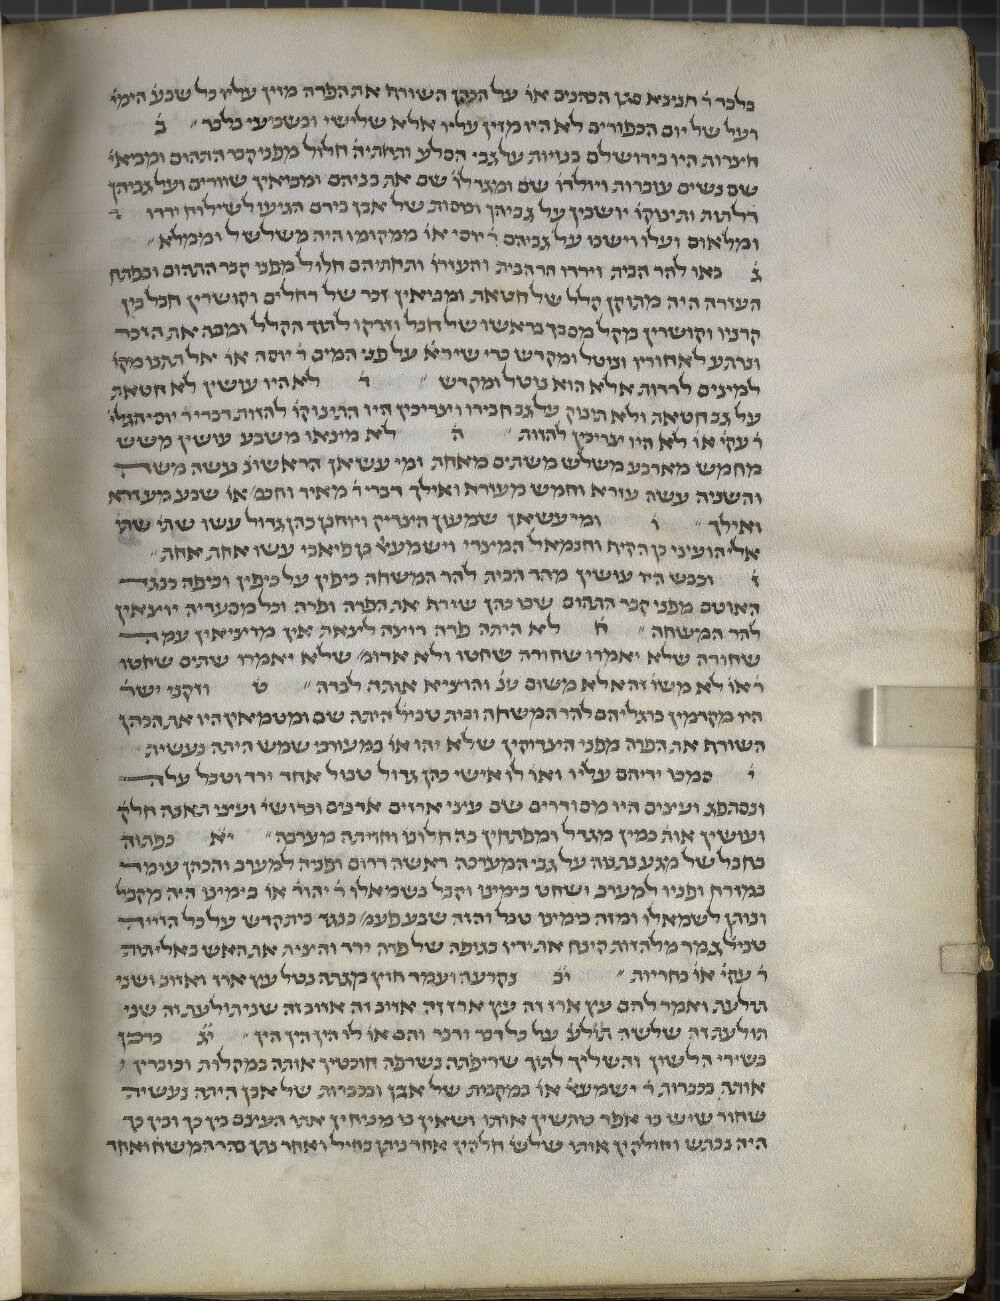 בלבד ר׳ חנינא סגן הכהנים או׳ על הכהן השורף את הפרה מזין עליו כל שבע׳ הימי׳
ועל של יום הכפורים לא היו מזין עליו אלא שלישי ובשביעי בלבד ״ ב׳
חצרות היו בירושלם בנויות על גבי הסלע ותחתיה׳ חלול מפני קבר התהום ומביאי׳
שם נשים עוברות ויולדו׳ שם ומגדלו׳ שם את בניהם ומביאין שוורים ועל גביהן
דלתות ותינוקו׳ יושבין על גביהן וכוסות של אבן בידם הגיעו לשילוח ירדו
ומלאום ועלו וישבו על גביהם ר׳ יוסי או׳ ממקומו היה משלשל וממלא ״
ג׳ באו להר הבית וירדו הר הבית והעזרו׳ ותחתיהם חלול מפני קבר התהום ובפתח
העזרה היה מתוקן קלל של חטאת ומביאין זכר של רחלים וקושרין חבל בין
קרניו וקושרין מקל מסבך בראשו של חבל וזורקו לתוך הקלל ומכה את הזכר
ונרתע לאחוריו ונוטל ומקדש כדי שירא׳ על פני המים ר׳ יוסה או׳ אל תתנו מקו׳
למינים לרדות אלא הוא נוטל ומקדש ״ ד׳ לא היו עושין לא חטאת
על גב חטאת ולא תינוק על גב חבירו וצריכין היו התינוקו׳ להזות דברי ר׳ יוסי הגלי׳
ר׳ עקי׳ או׳ לא היו צריכין להזות ״ ה׳ לא מינאו משבע עושין משש
מחמש מארבע משלש משתים מאחת ומי עשאן הראשונ׳ עשה משה
והשניה עשה עזרא וחמש מעזרא ואילך דברי ר׳ מאיר וחכמ׳ או׳ שבע מעזרא
ואילך ״ ו׳ ומי עשאן שמעון הצדיק ויוחנן כהן גדול עשו שתי׳ שתי׳
אליהועיני בן הקיף וחנמאל המיצרי וישמעא׳ בן פיאבי עשו אחת אחת ״
ז׳ וכבש היו עושין מהר הבית להר המשחה כיפין על כיפין וכיפה כנגד
האוטם מפני קבר התהום שבו כהן שורף את הפרה ופרה וכל מסעדיה יוצאין
להר המשחה ״ ח׳ לא היתה פרה רוצה לצאת אין מוציאין עמה
שחורה שלא יאמרו שחורה שחטו ולא אדומ׳ שלא יאמרו שתים שחטו
ר׳ או׳ לא משו׳ זה אלא משום שנ׳ והוציא אותה לבדה ״ ט׳ וזקני ישר׳
היו מקדמין ברגליהם להר המשחה ובית טביל׳ היתה שם ומטמאין היו את הכהן
השורף את הפרה מפני הצדוקין שלא יהו או׳ במעורבי שמש היתה נעשית ״
י׳ סמכו ידיהם עליו ואו׳ לו אישי כהן גדול טבול אחד ירד וטבל עלה
ונסתפג ועצים היו מסודרים שם עיצי ארזים ארנים וברושי׳ ועיצי תאנה חלק׳
ועושין אות׳ כמין מגדל ומפתחין בה חלונו׳ וחזיתה מערבה ״ יא׳ כפתוה
בחבל של מגג ונתנוה על גבי המערכה ראשה דרום ופניה למערב והכהן עומד
במזרח ופניו למערב ושחט בימינו וקבל בשמאלו ר׳ יהוד׳ או׳ בימינו היה מקבל
ונותן לשמאלו ומזה בימינו טבל והזה שבע פעמ׳ כנגד בית קדש על כל הזייה
טביל׳ גמר מלהזות קינח את ידיו בגופה של פרה ירד והיצית את האש באליתות
ר׳ עקי׳ או׳ בחריות ״ יב׳ נקרעה ועמד חוץ מגתה נטל עץ ארז ואזוב ושני
תולעת ואמר להם עץ ארז זה עץ ארז זה אזוב זה אזוב זה שני תולעת זה שני
תולעת זה שלשה פעמ׳ על כל דבר ודבר והם או׳ לו הין הין הין ״ יג׳ כרכן
בשירי הלשון והשליך לתוך שריפתה נשרפה חובטין אותה במקלות וכוברין
אותה בכברות ר׳ ישמעא׳ או׳ במקבות של אבן ובכברות של אבן היתה נעשית
שחור שיש בו אפר כותשין אותו ושאין בו מניחין אתו העצם בין כך ובין כך
היה נכתש וחולקין אותו שלש׳ חלקין אחד ניתן בחיל ואחד נתן בהר המשח׳ ואחד